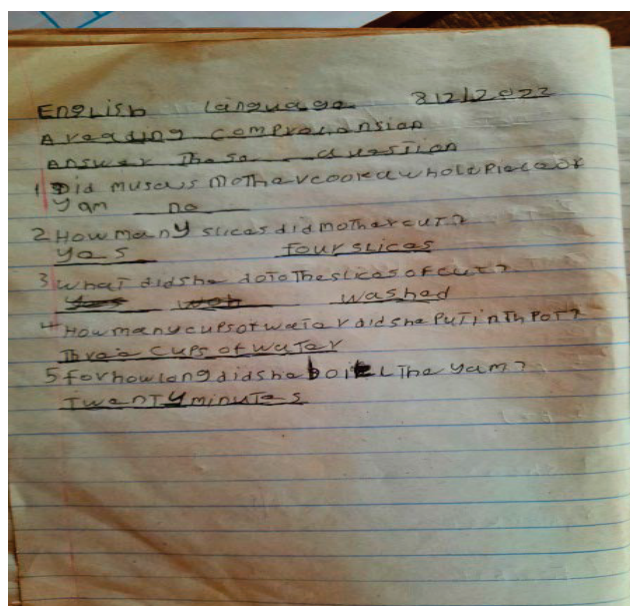 English language 8/2/2022
A reading comprehansian
Answer These quesstian
1 Did musa,s mother cooked a whole piece of
yam no
2 How many slices did mother cut?
yes four slices
3 What did she do to The slices of cut?
washed
4 How many cups of water did she put in Th pot?
Three cups of water
5 for how long did she boil The yam?
Twenty minutes